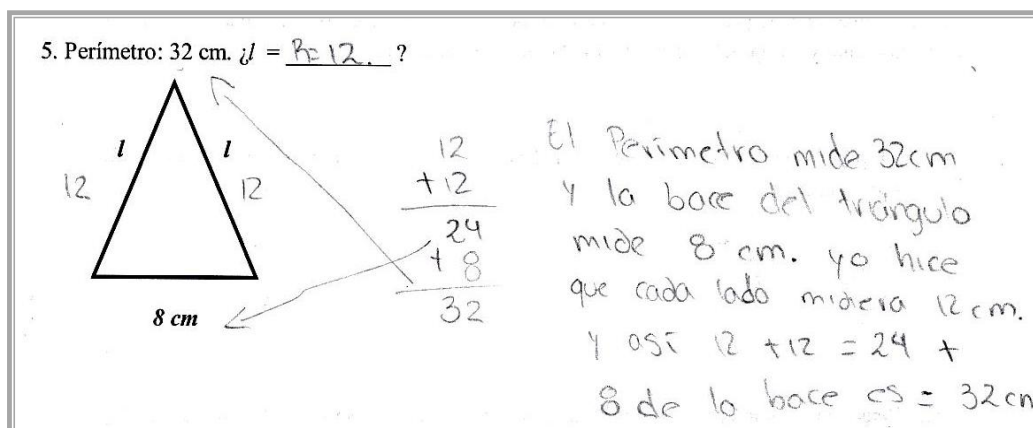 5. Perímetro: 32 cm. ¿l = R= 12. ?
l l
12 12
8 cm
12
+ 12
24
+ 8
32
El Perimetro mide 32cm
y la bace del triángulo
mide 8 cm. yo hice
que cada lado midiera 12 cm.
y así 12 + 12 = 24 +
8 de la bace es = 32 cm